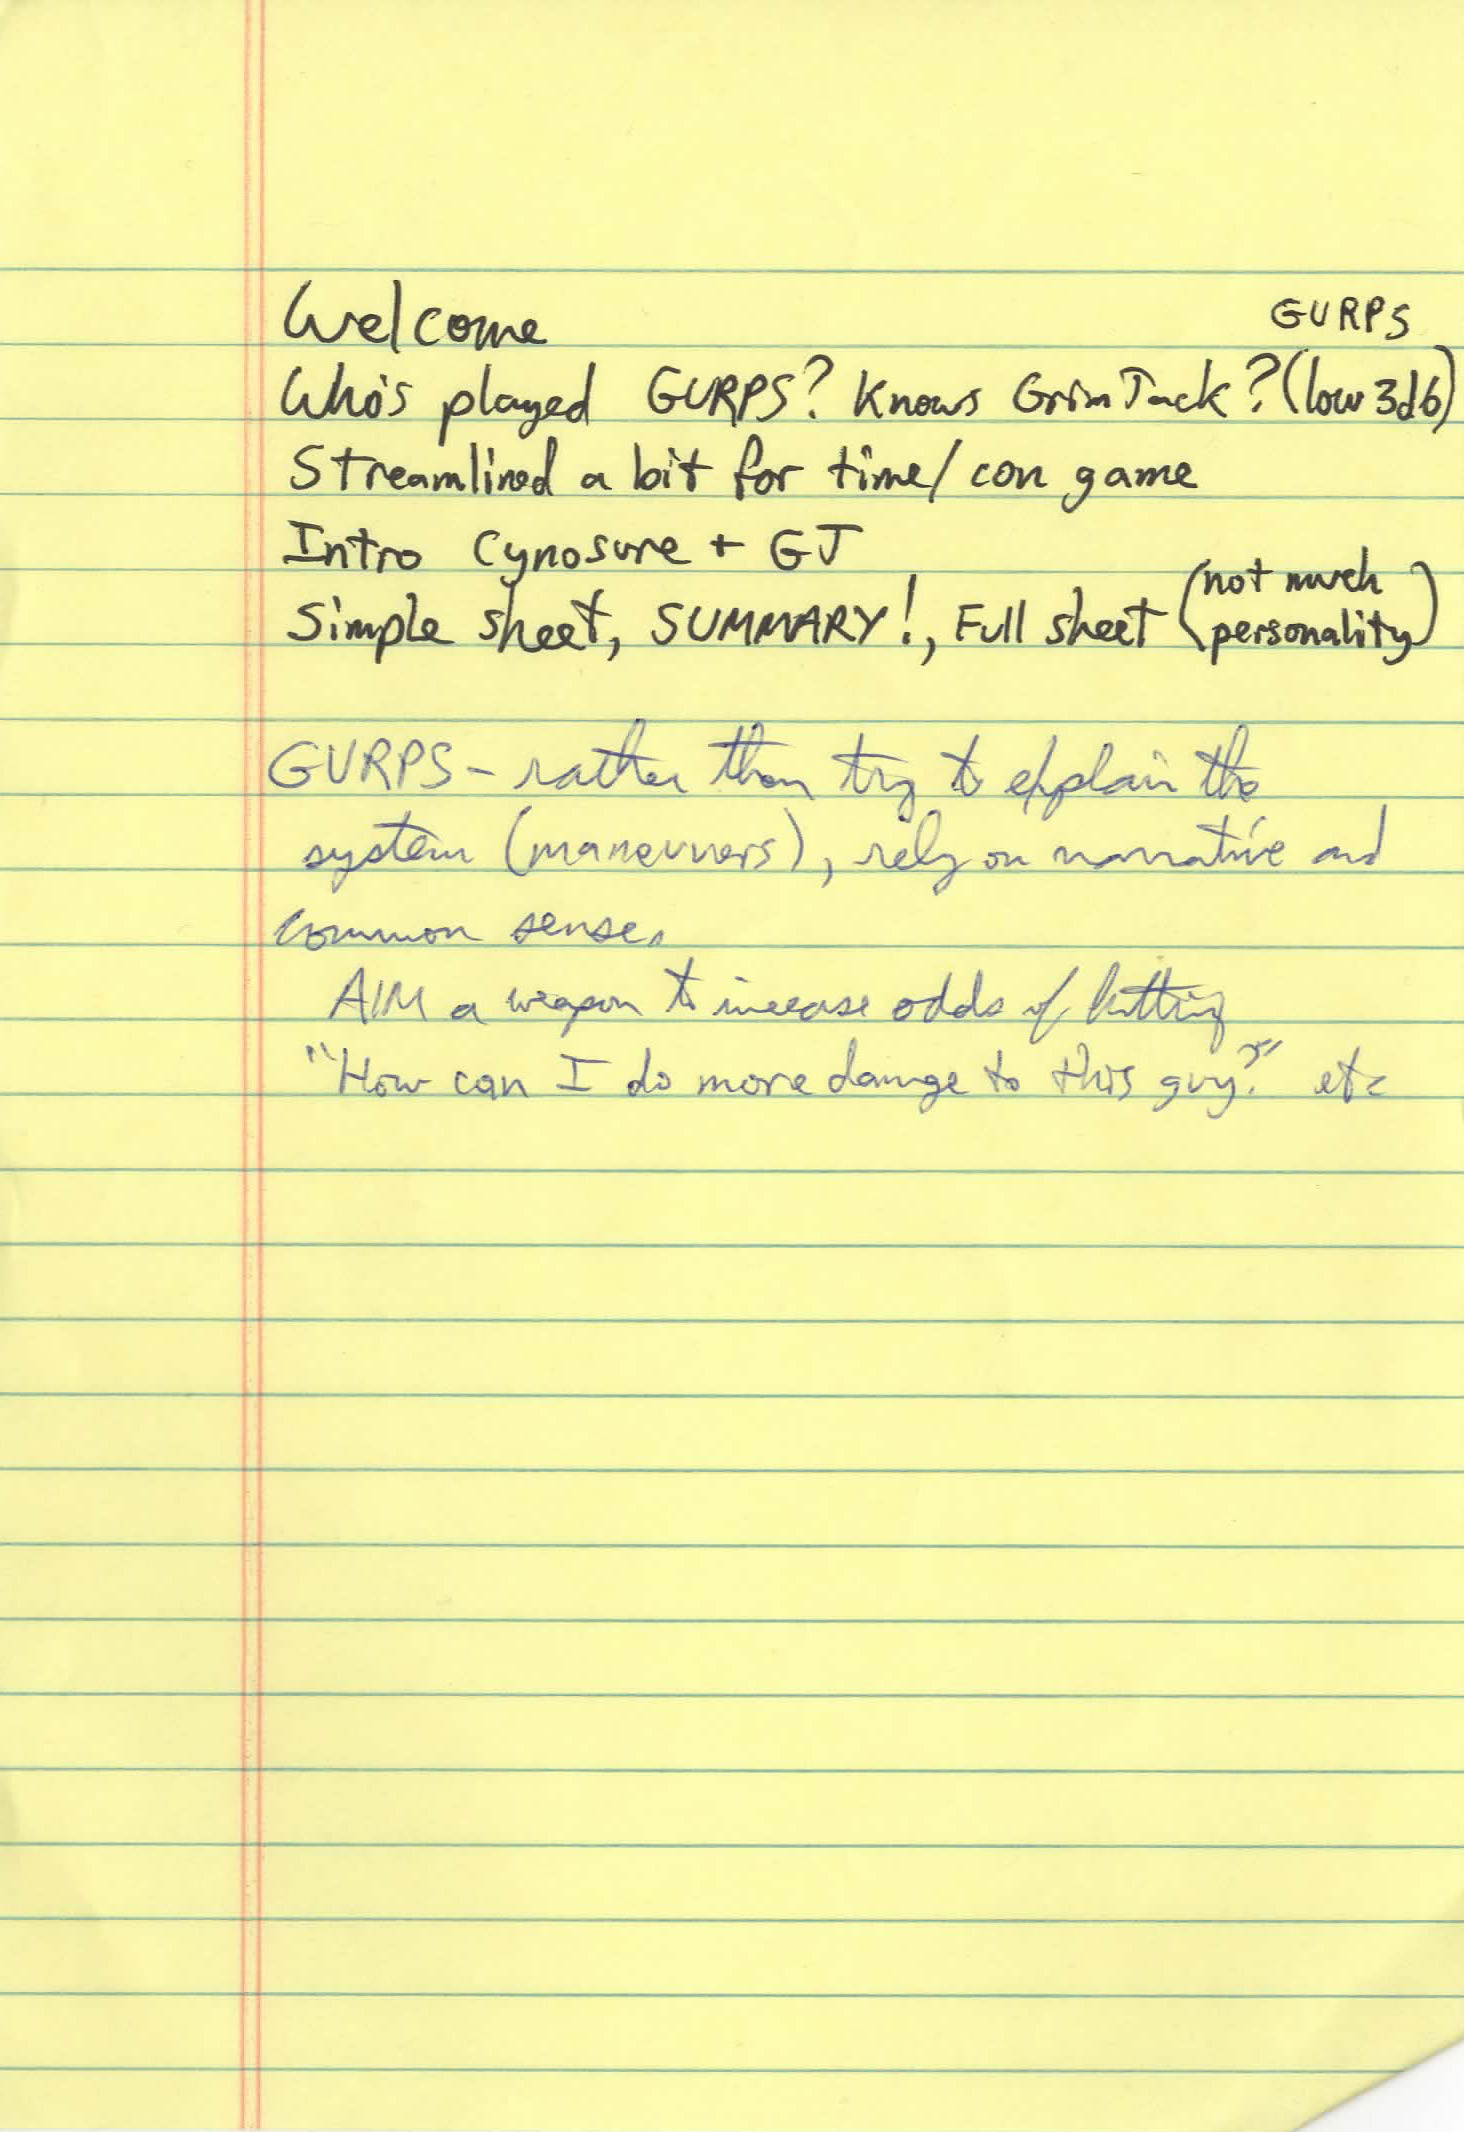 Welcome
GURPS
Who's played GURPS? Knows GrimJack? (low 3d6)
Streamlined a bit for time/con game
Intro Cynosure + GJ
Simple sheet, SUMMARY!, Full sheet (not much personality)
GURPS - rather than try to explain the
system (maneuvers), rely on narrative and
common sense.
AIM a weapon to increase odds of hitting
"How can I do more damge to this guy?" etc